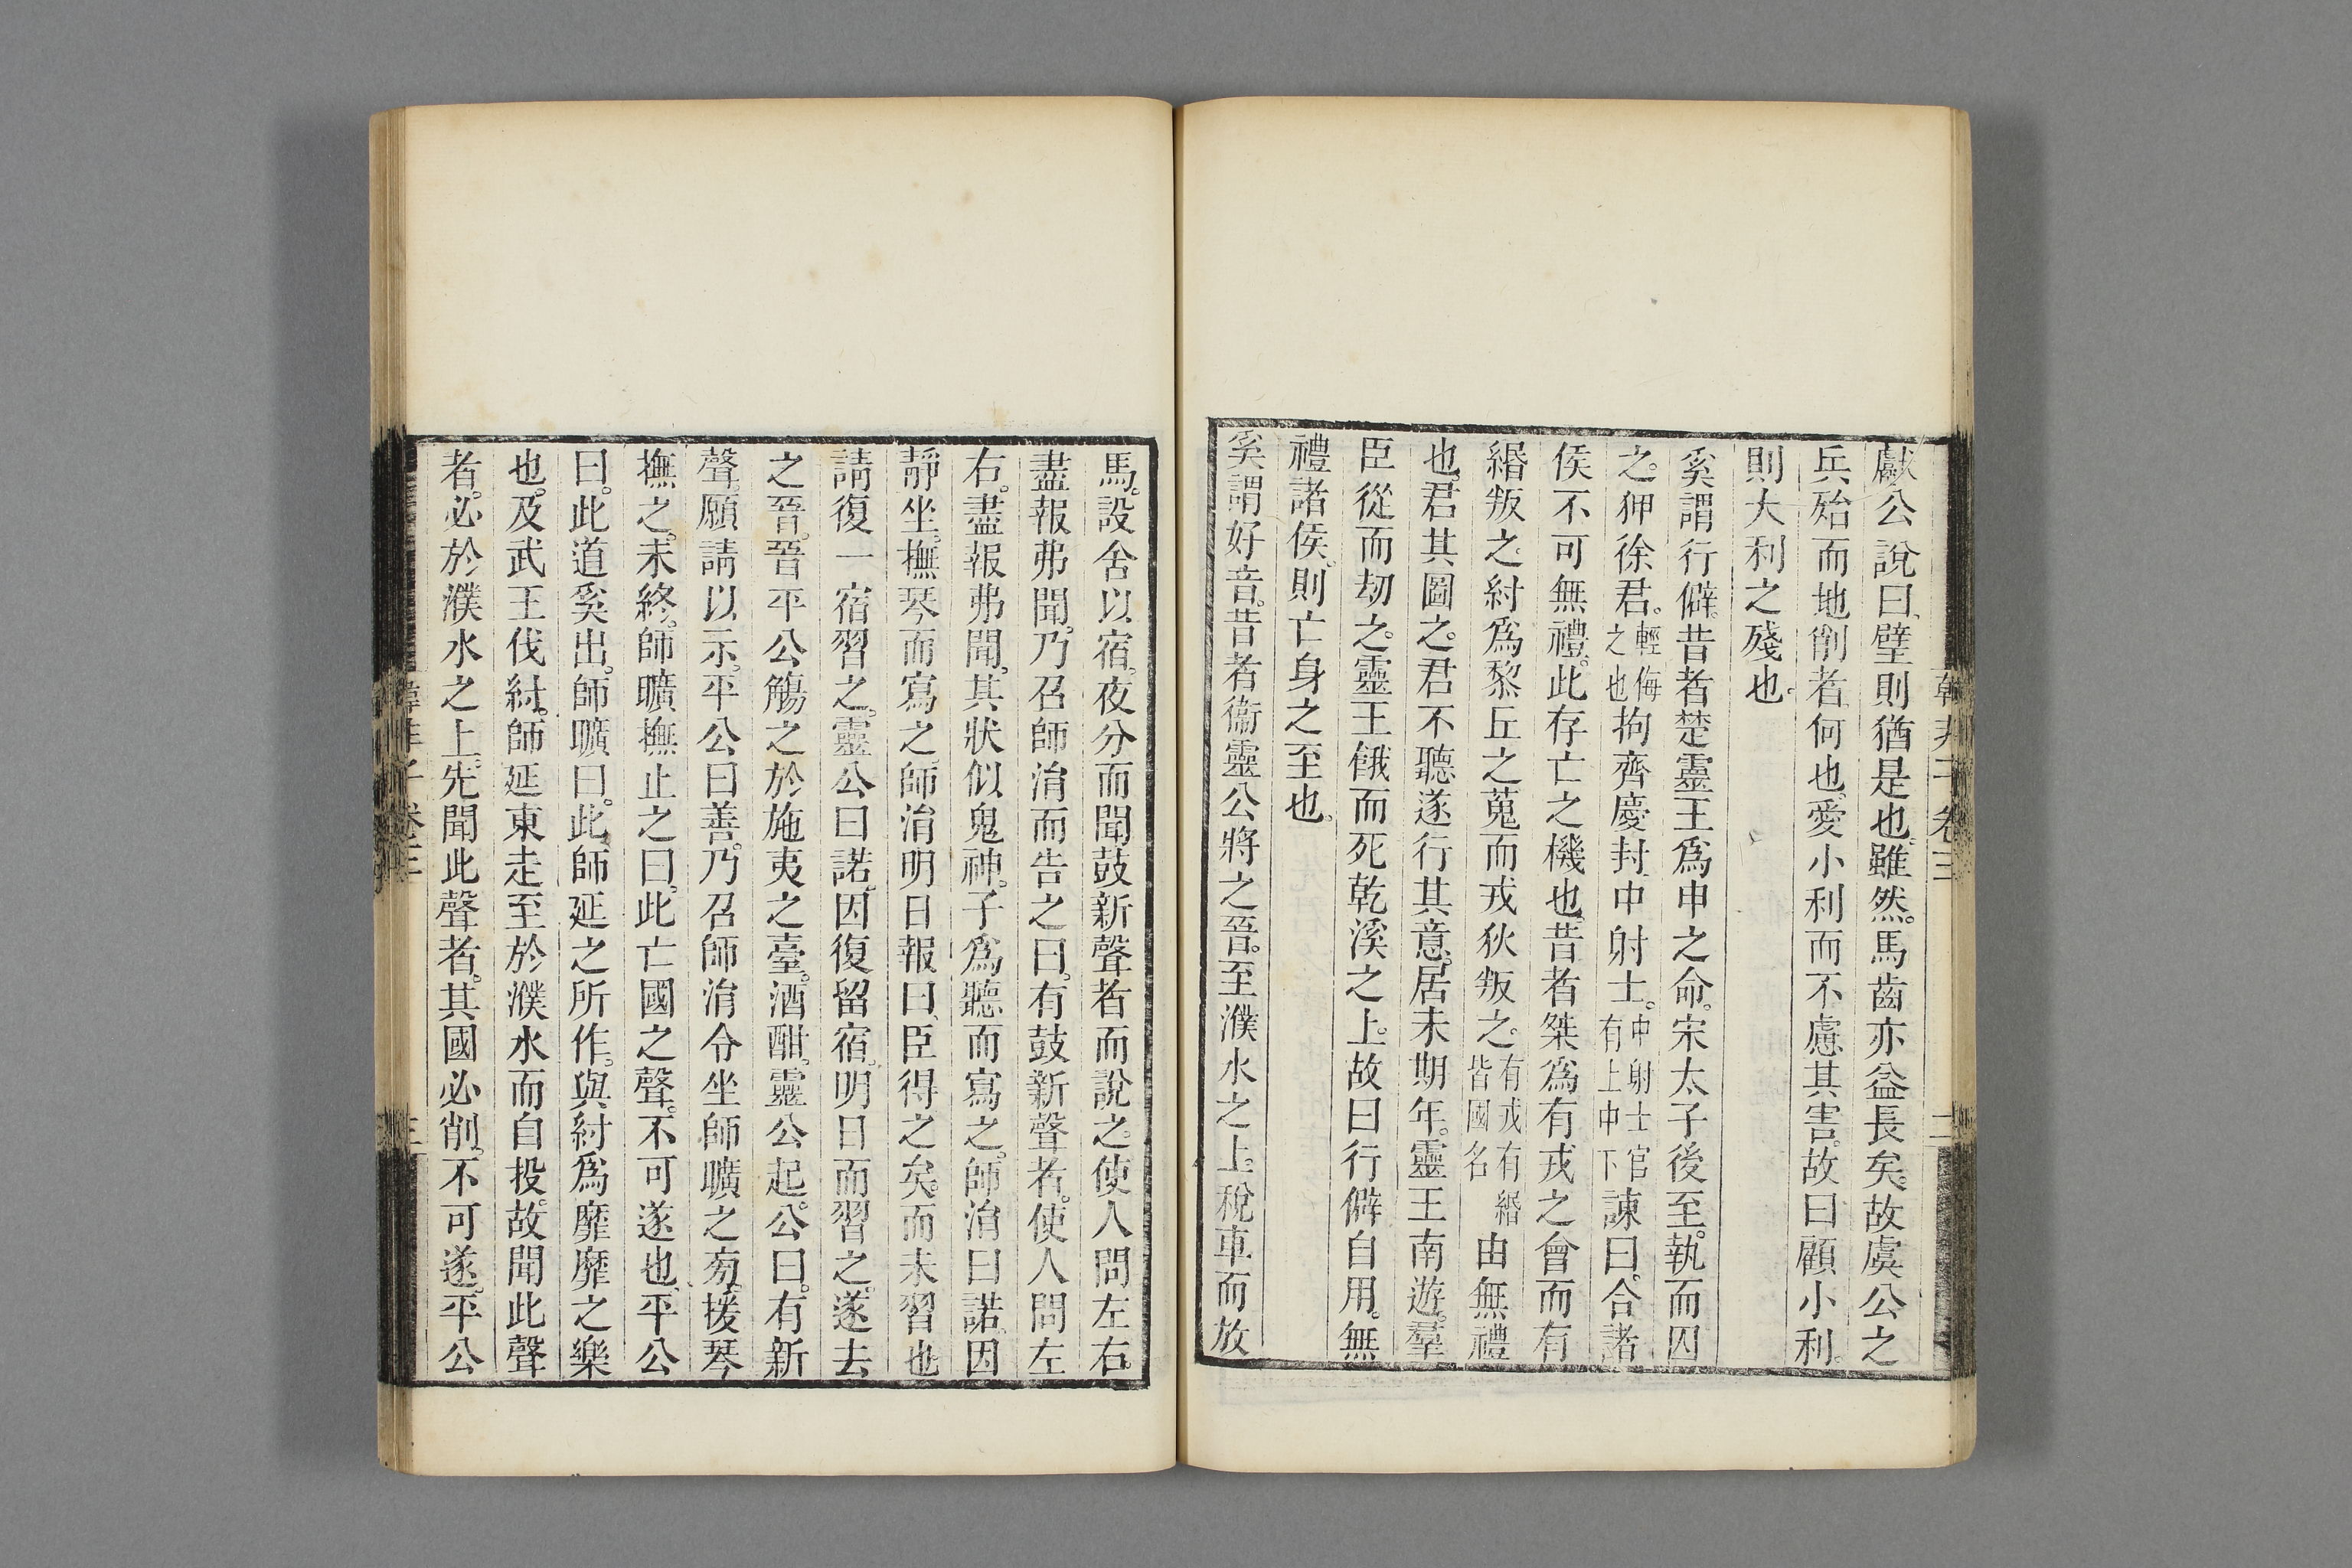 獻公說曰璧則猶是也雖然馬齒亦益長矣故虞公之
兵殆而地削者何也愛小利而不慮其害故曰顧小利
則大利之殘也
奚謂行僻昔者楚靈王爲申之命宋太子後至執而囚
之狎徐君輕侮之也拘齊慶封中射士中射士官有上中下諫曰合諸
侯不可無禮此存亡之機也昔者桀爲有戎之會而有
緡叛之紂爲黎丘之蒐而戎狄叛之有戎有緡皆國名由無禮
也君其圖之君不聽遂行其意居未期年靈王南遊羣
臣從而劫之靈王餓而死乾溪之上故曰行僻自用無
禮諸侯則亡身之至也
奚謂好音昔者衞靈公將之晉至濮水之上稅車而放
韓非子卷三
二
馬設舍以宿夜分而聞鼓新聲者而說之使人問左右
盡報弗聞乃召師涓而告之曰有鼓新聲者使人問左
右盡報弗聞其狀似鬼神子爲聽而寫之師涓曰諾因
靜坐撫琴而寫之師涓明日報曰臣得之矣而未習也
請復一宿習之靈公曰諾因復留宿明日而習之遂去
之晉晉平公觴之於施夷之臺酒酣靈公起公曰有新
聲願請以示平公曰善乃召師涓令坐師曠之旁援琴
撫之未終師曠撫止之曰此亡國之聲不可遂也平公
曰此道奚出師曠曰此師延之所作與紂爲靡靡之樂
也及武王伐紂師延東走至於濮水而自投故聞此聲
者必於濮水之上先聞此聲者其國必削不可遂平公
韓非子卷三
三